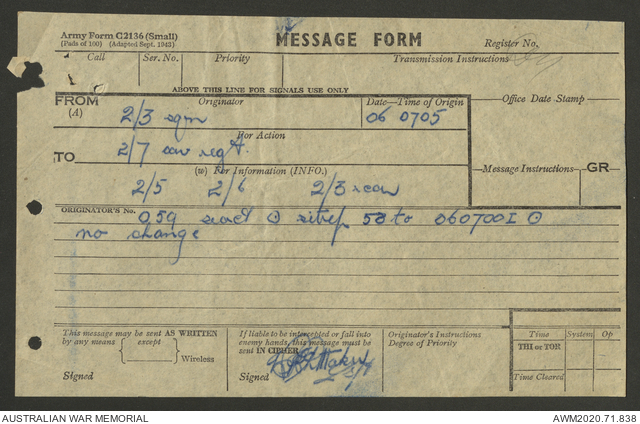 Army Form C2136 (Small)
(Pads of 100) (Adapted Sept. 1943)
MESSAGE FORM
Register No.
Call Ser. No. Priority Transmission Instructions
ABOVE THIS LINE FOR SIGNALS USE ONLY
FROM Originator Date—Time of Origin Office Date Stamp
(A) 2/3 sqn 06 0705
For Action
TO 2/7 cav regt.
(w) For Information (INFO.) Message Instructions GR
2/5 2/6 2/3
ORIGINATOR'S No. 059 ⊙ sitrep 58 to 060700I ⊙
no change
This message may be sent AS WRITTEN
by any means except
Wireless
Signed
If liable to be intercepted or fall into
enemy hands, this message must be
sent IN CIPHER
Signed
Originator's Instructions
Degree of Priority
Time System Op
THI or TOR
Time Cleared
AUSTRALIAN WAR MEMORIAL AWM2020.71.838